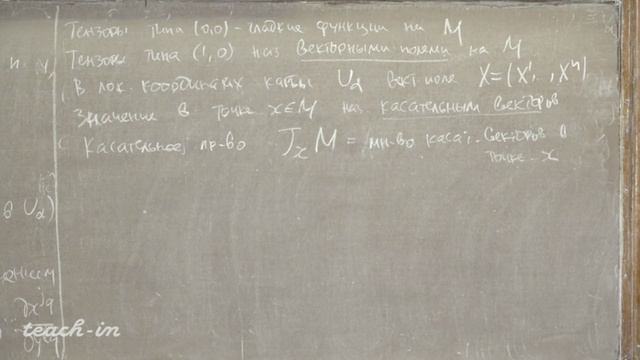 Тензоры типа (0,0) - гладкие функции на M
Тензоры типа (1,0) наз векторными полями на M
В лок. координатах карты Uα вект поле X=(X¹, , Xⁿ)
Значение в точке x∈M наз касательным вектором
Касательное пр-во TₓM = мн-во касат. векторов в
точке x
в Uα)
teach-in